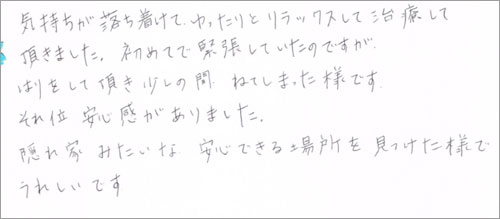 気持ちが落ち着けて、ゆったりとリラックスして治療して
頂きました。初めてで緊張していたのですが、
はりをして頂き少しの間、ねてしまった様です。
それ位、安心感がありました。
隠れ家みたいな、安心できる場所を見つけた様で
うれしいです